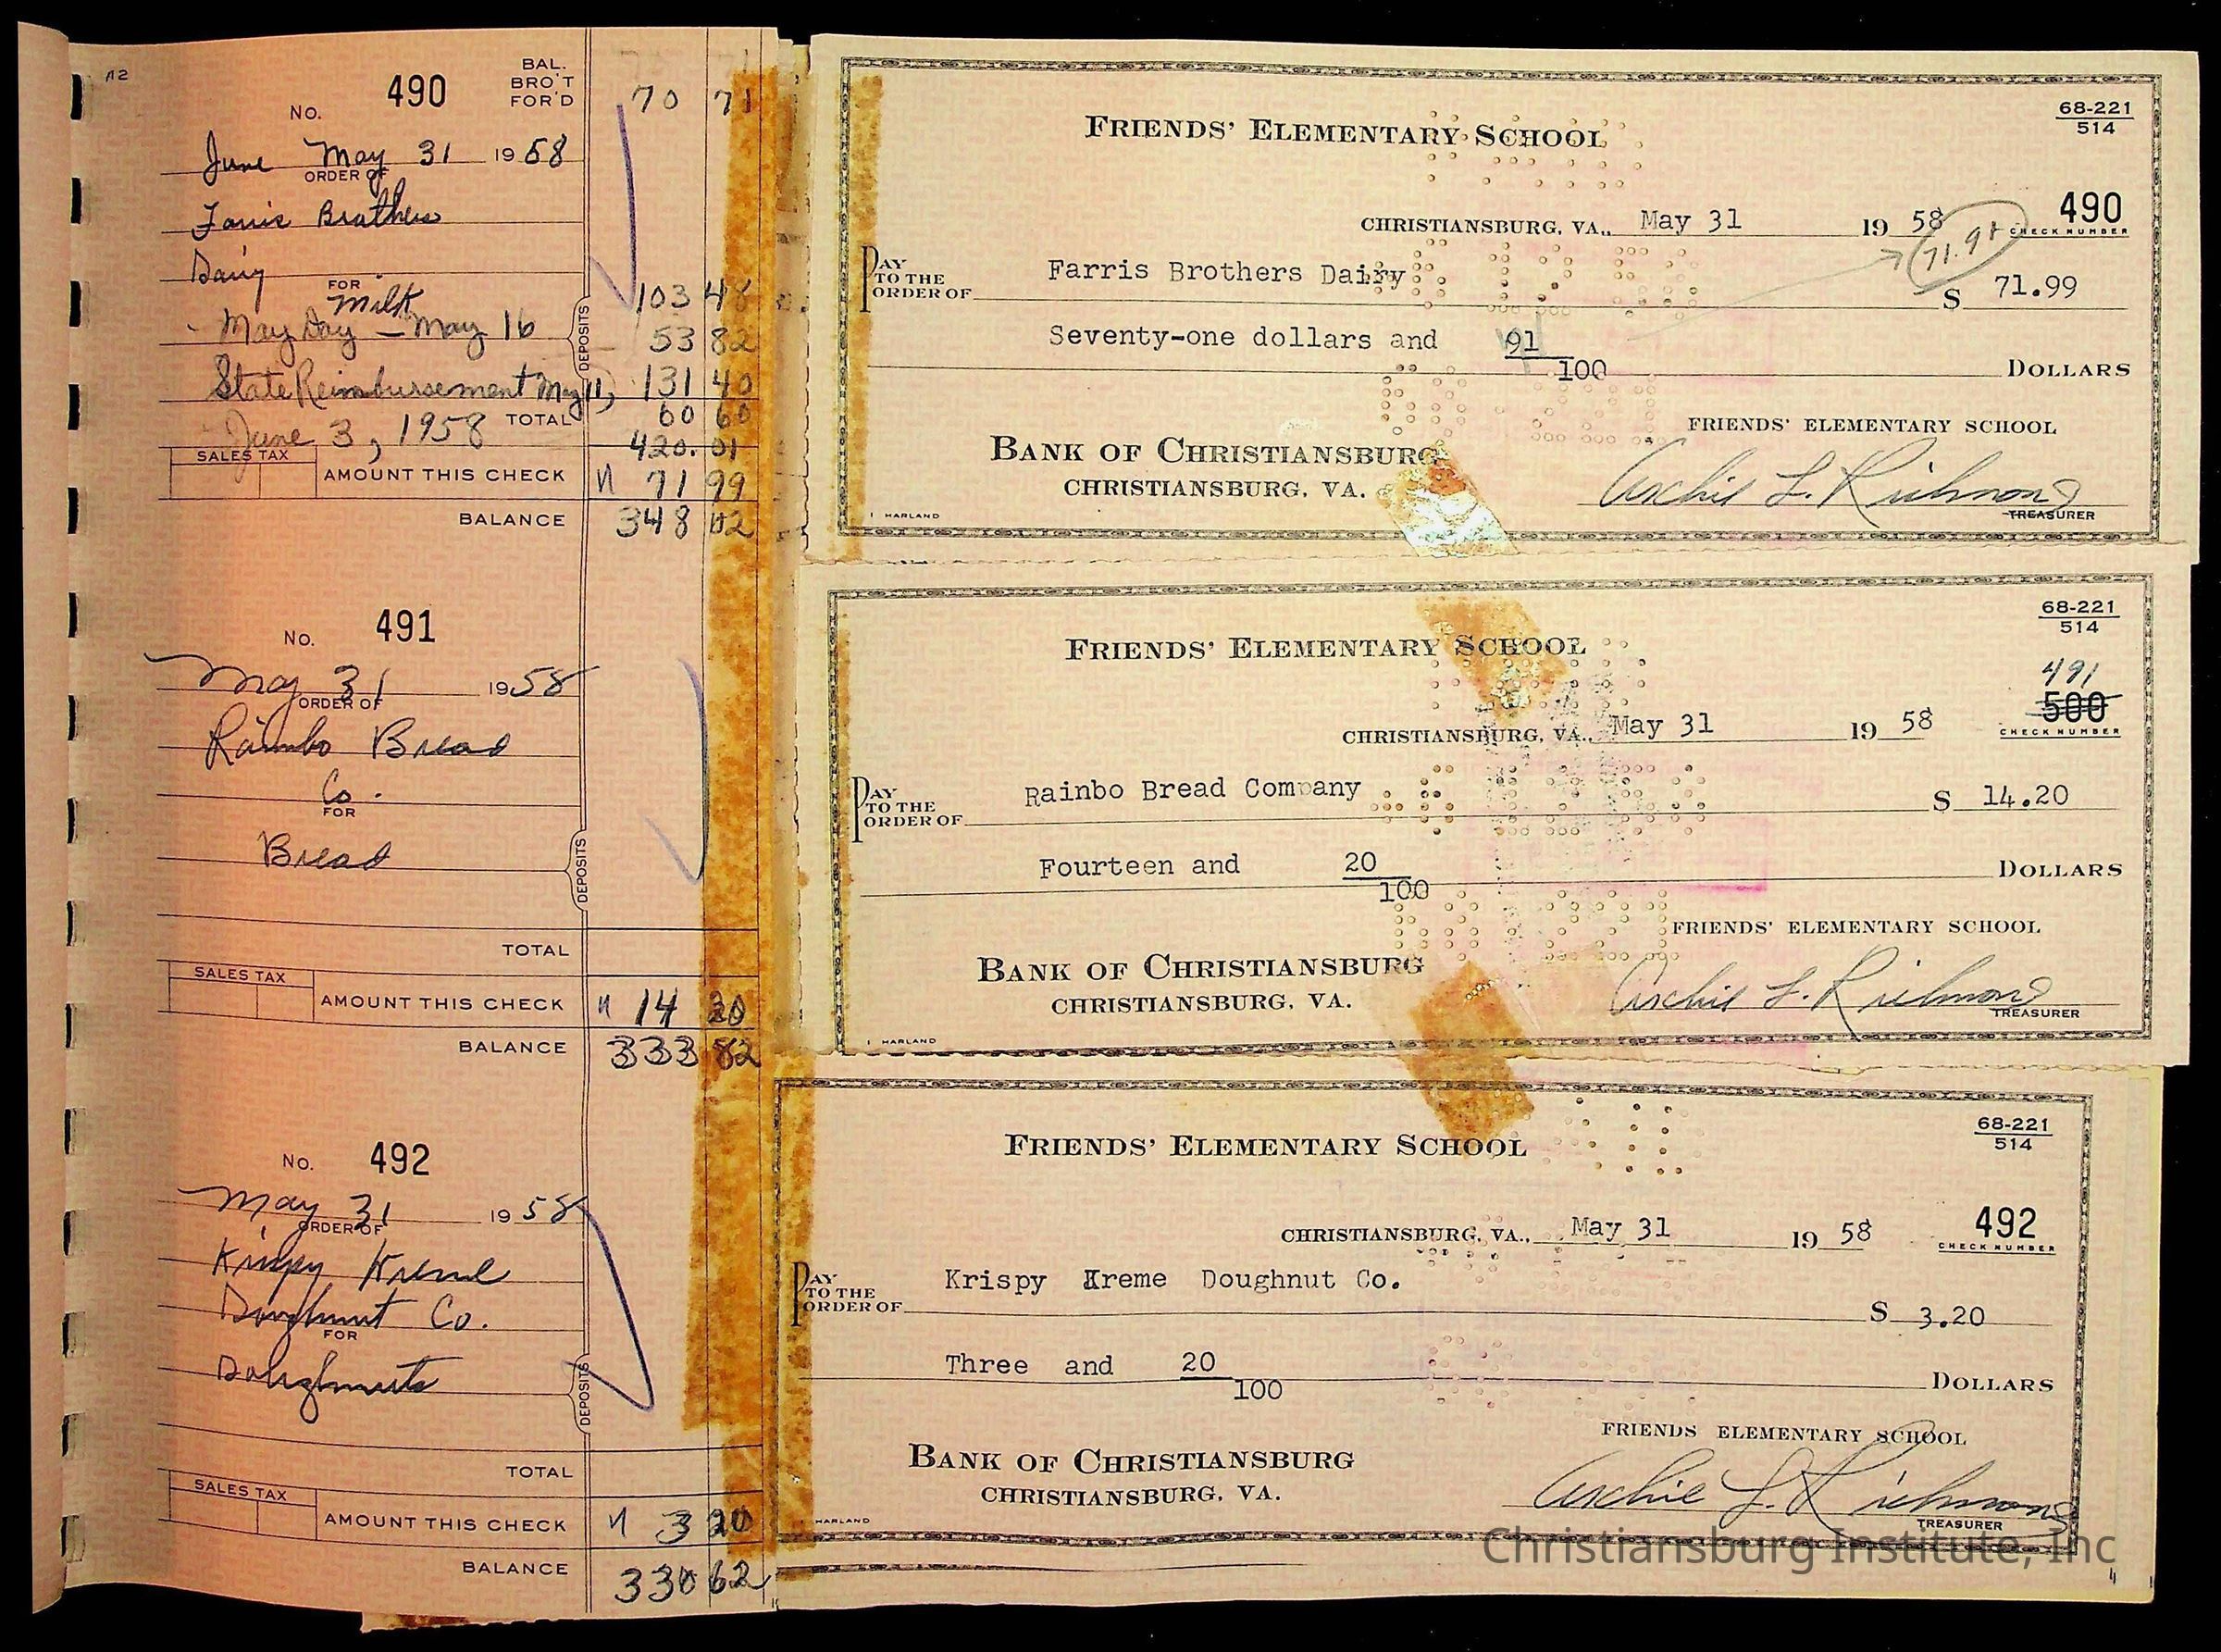 A2
No. 490
BAL.
BRO'T
FOR'D
70 71
June May 31 1958
ORDER OF
Farris Brothers
Dairy
FOR
Milk
103 48
May Day - May 16
53 82
DEPOSITS
State Reimbursement May 11, 131 40
TOTAL 60 60
June 3, 1958
420.01
SALES TAX
AMOUNT THIS CHECK 71 99
BALANCE 348 02
No. 491
May 31 1958
ORDER OF
Rainbo Bread
Co.
FOR
Bread
DEPOSITS
TOTAL
SALES TAX
AMOUNT THIS CHECK 14 20
BALANCE 333 82
No. 492
May 31 1958
ORDER OF
Krispy Kreme
Doughnut Co.
FOR
Doughnuts
DEPOSITS
TOTAL
SALES TAX
AMOUNT THIS CHECK 3 20
BALANCE 330 62
FRIENDS' ELEMENTARY SCHOOL
68-221
514
CHRISTIANSBURG, VA., May 31 19 58
490
CHECK NUMBER
PAY
TO THE
ORDER OF
Farris Brothers Dairy
$ 71.99
Seventy-one dollars and 91/100 DOLLARS
FRIENDS' ELEMENTARY SCHOOL
BANK OF CHRISTIANSBURG
CHRISTIANSBURG, VA.
Archie L. Richmond
TREASURER
HARLAND
FRIENDS' ELEMENTARY SCHOOL
68-221
514
491
500
CHECK NUMBER
CHRISTIANSBURG, VA., May 31 19 58
PAY
TO THE
ORDER OF
Rainbo Bread Company
$ 14.20
Fourteen and 20/100 DOLLARS
FRIENDS' ELEMENTARY SCHOOL
BANK OF CHRISTIANSBURG
CHRISTIANSBURG, VA.
Archie L. Richmond
TREASURER
HARLAND
FRIENDS' ELEMENTARY SCHOOL
68-221
514
CHRISTIANSBURG, VA., May 31 19 58
492
CHECK NUMBER
PAY
TO THE
ORDER OF
Krispy Kreme Doughnut Co.
$ 3.20
Three and 20/100 DOLLARS
FRIENDS ELEMENTARY SCHOOL
BANK OF CHRISTIANSBURG
CHRISTIANSBURG, VA.
Archie L. Richmond
TREASURER
HARLAND
Christiansburg Institute, Inc